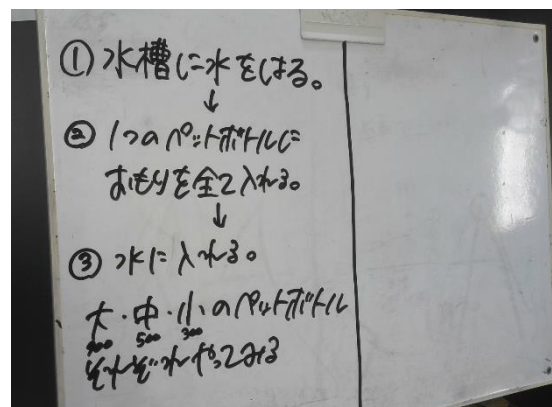 ① 水槽に水をはる。
↓
② 1つのペットボトルに
おもりを全て入れる。
↓
③ 水に入れる。
大・中・小のペットボトル
500 300
それぞれやってみる